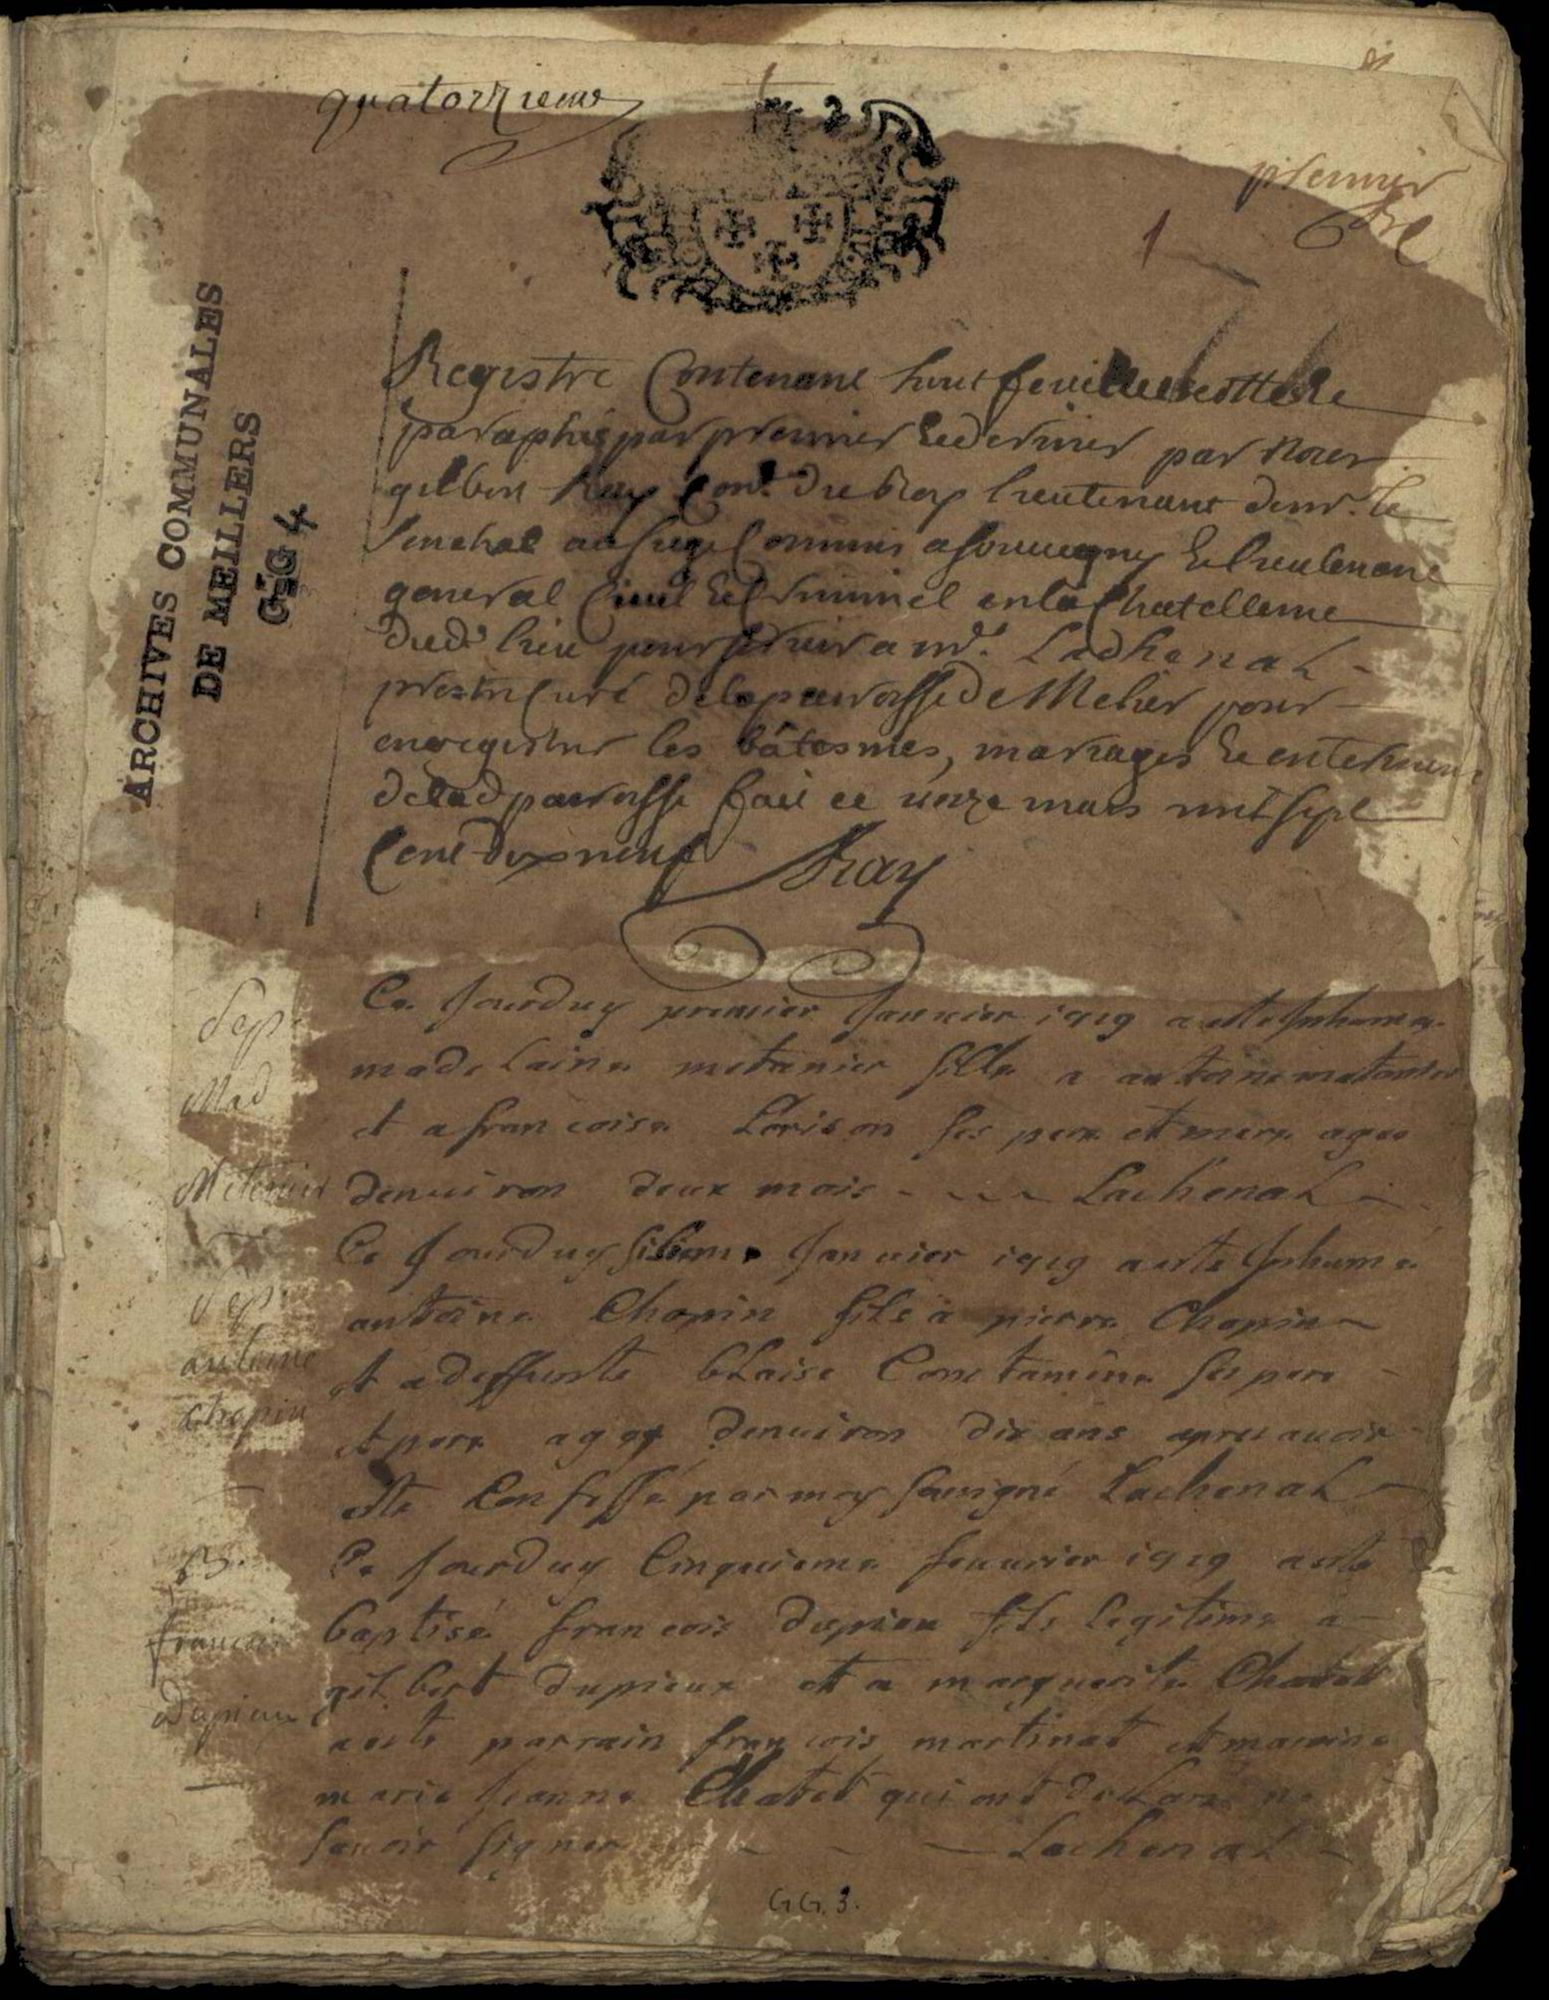 quatorzieme
premier
1
ARCHIVES COMMUNALES
DE MEILLERS
GG 4
Registre Contenant huit feuillets cotte &
paraphé par premier & dernier par nous
gilbert Ray Con.r du Roy lieutenant de mr. le
Senehal au siege Commun a souvigny & lieutenant
general Civil & Criminel en la Chatellenie
dud.t lieu pour servir a mr. Lachenal
prestre Curé de la parroisse de Melier pour
enregistrer les bâtesmes, mariages & enterremens
de lad parroisse fait ce unze mars mil sept
Cent dix neuf Ray
Sep.
Mad
Metenier
Ce Jourduy premier Janvier 1719 a este Inhumee
madelaine metenier fille a antoine metenier
et a francoise Lorison ses pere et mere agee
denuiron deux mois Lachenal
Sep.
antoine
chopin
Ce Jourduy Janvier 1719 a este Inhumé
antoine Chopin fils a pierre Chopin
et a deffunte blaise Contamine ses pere
et pere agé denuiron dix ans apres avoir
este Confessé par moy sousigné Lachenal
B.
francois
dupieux
Ce Jourduy Cinquieme feuurier 1719 a este
baptisé francois dupieux fils legitime a
gilbert dupieux et a marguerite Chatet
a este parrain francois martinat et maraine
marie Jeanne Chatet qui ont declaré ne
sauoir signer Lachenal
GG. 3.